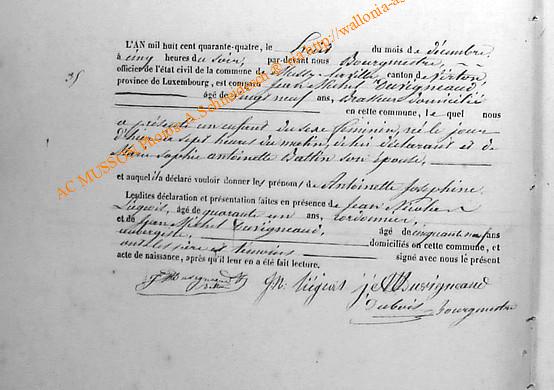 L'AN mil huit cent quarante-quatre, le trois du mois de décembre
à cinq heures du soir, par-devant nous Bourgmestre
officier de l'état civil de la commune de canton de Virton,
province de Luxembourg, est comparu Jean Michel Duvigneaud
âgé de vingt neuf ans, Brasseur domicilié
en cette commune, Le quel nous
a présenté un enfant du sexe feminin, né le jour
d'hier à sept heures du matin, de lui déclarant et de
Marie Sophie antoinette son épouse,
et auquel il a déclaré vouloir donner les prénoms de Antoinette Josephine
Lesdites déclaration et présentation faites en présence de Jean
Liégeois, âgé de quarante un ans, cordonnier,
et de Jean Michel Duvigneaud, âgé de cinquante ans
aubergiste, domiciliés en cette commune, et
ont les père et témoins signé avec nous le présent
acte de naissance, après qu'il leur en a été fait lecture.
Duvigneaud
Liégeois Duvigneaud
Dubois bourgmestre
35
AC MUSSON Photos A. Schneidesch © cg http://wallonia-as